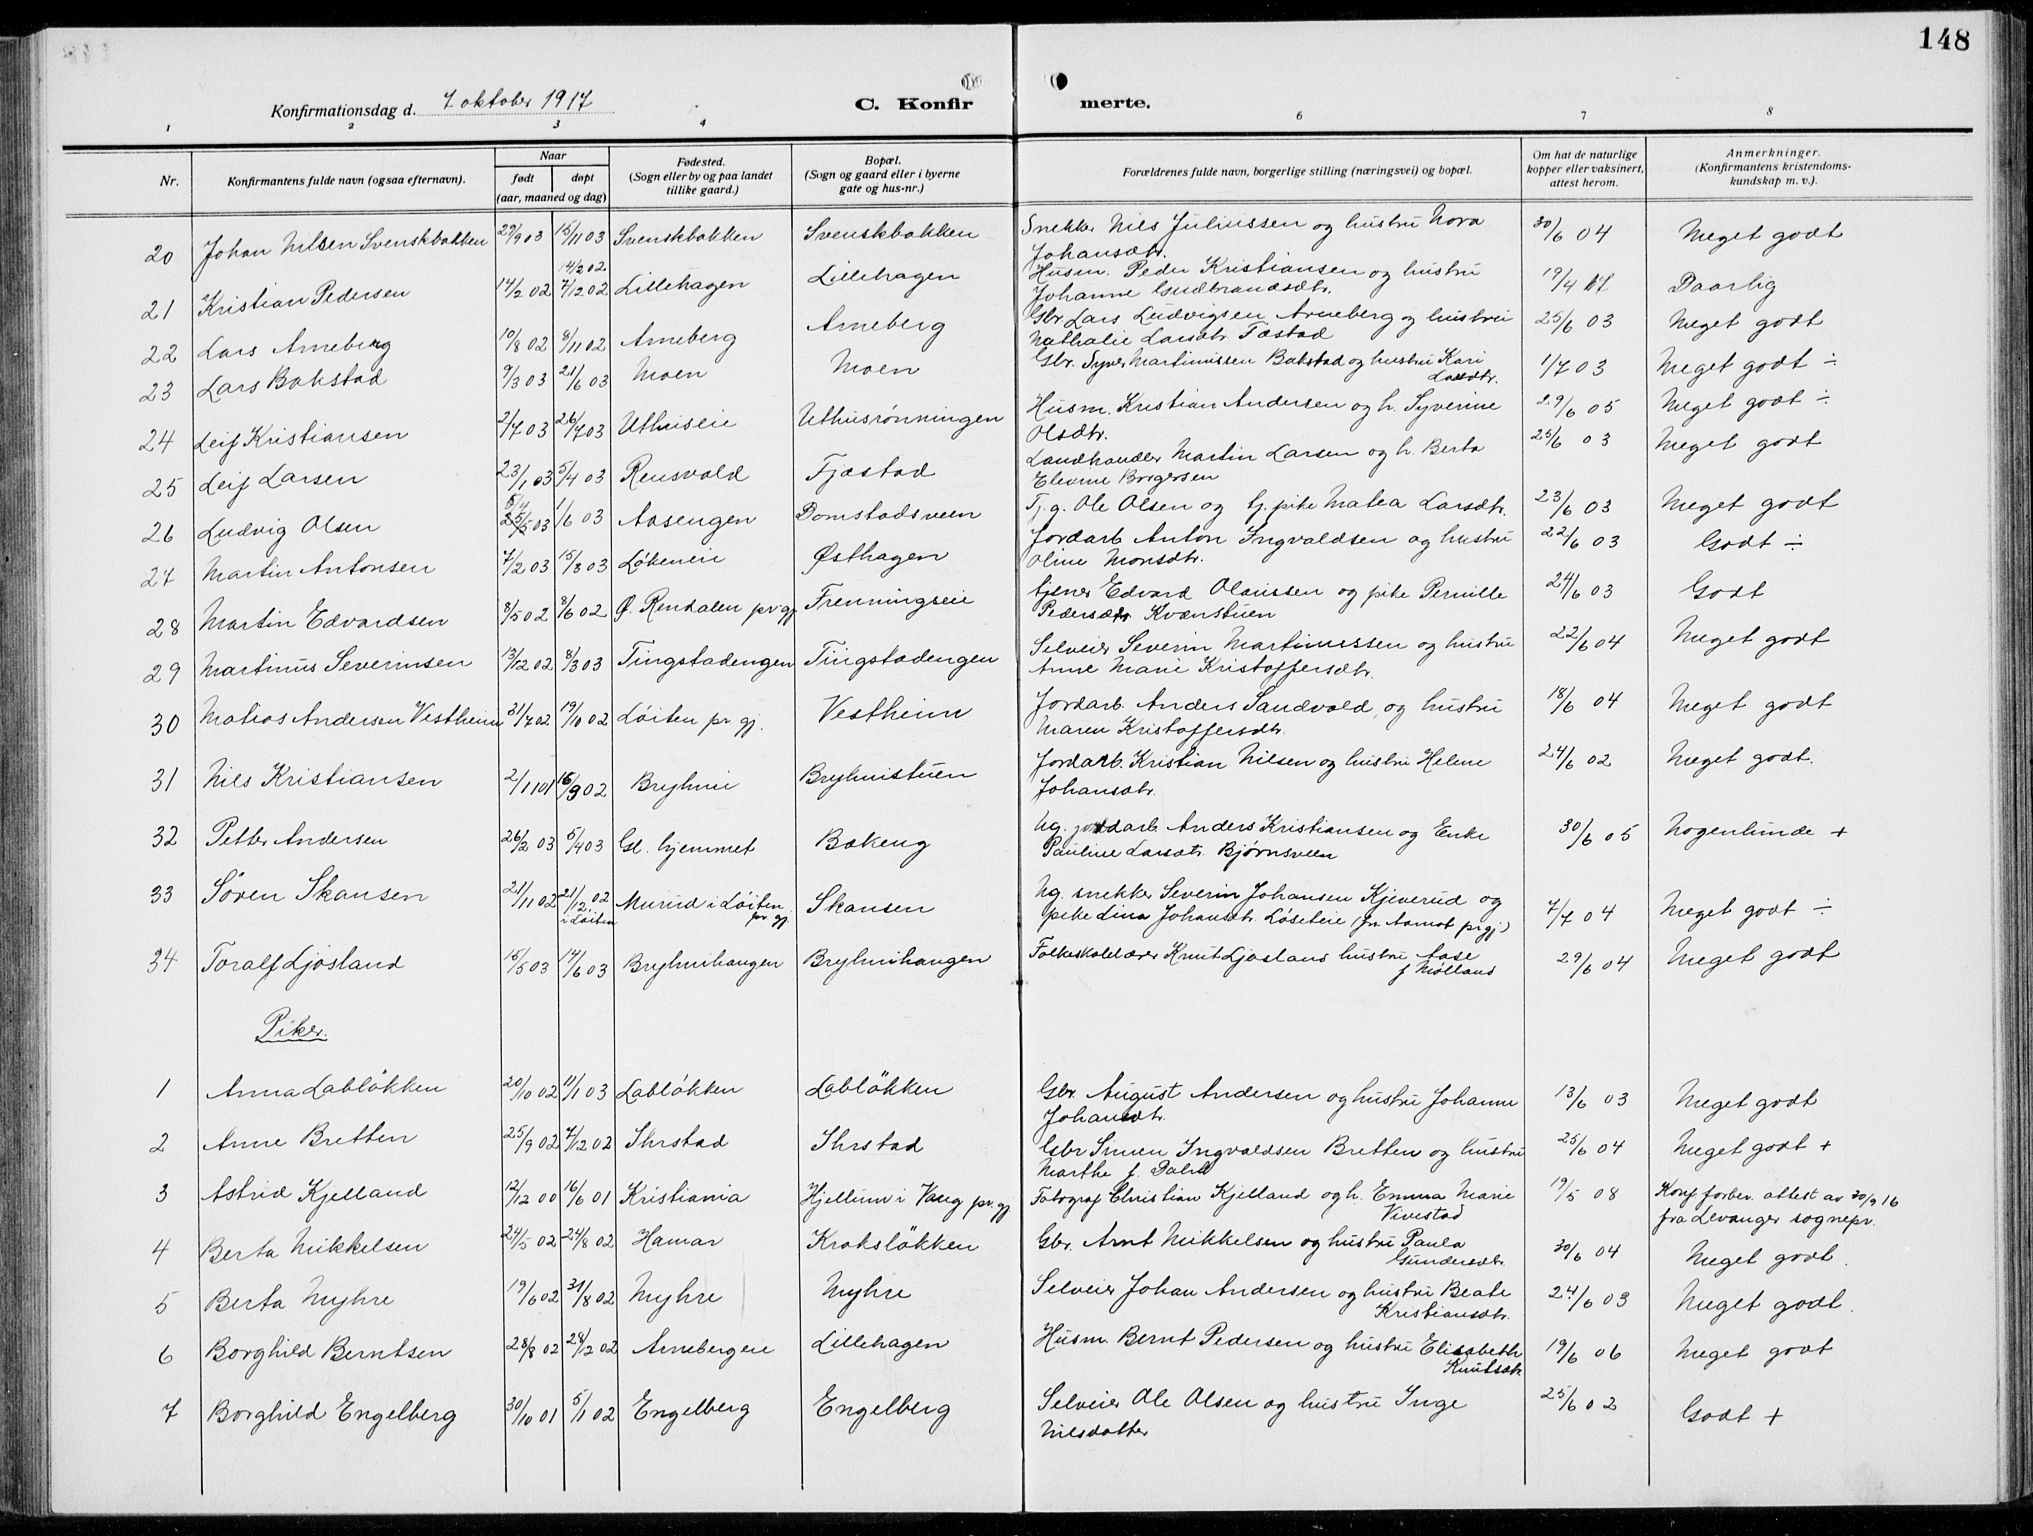 148
Konfirmationsdag d. 7 oktober 1917
C. Konfir merte.
1 2 3 4 6 7 8
Nr. Konfirmantens fulde navn (ogsaa efternavn). Naar født døpt (aar, maaned og dag) Fødested. (Sogn eller by og paa landet tillike gaard.) Bopæl. (Sogn og gaard eller i byerne gate og hus-nr.) Forældrenes fulde navn, borgerlige stilling (næringsvei) og bopæl. Om hat de naturlige kopper eller vaksinert, attest herom. Anmerkninger. (Konfirmantens kristendoms-kundskap m. v.).
20 Johan Nilsen Svenskbakken 29/9 03 15/11 03 Svenskbakken Svenskbakken Snekker Nils Juliussen og hustru Nora 30/6 04 Meget godt
Johansdtr.
14/2 02
21 Kristian Pedersen 14/2 02 7/12 02 Lillehagen Lillehagen Husm. Peder Kristiansen og hustru 19/4 17 Daarlig
Johanne Gudbrandsdtr.
22 Lars Arneberg 10/8 02 8/11 02 Arneberg Arneberg Gbr Lars Ludvigsen Arneberg og hustru 25/6 03 Meget godt
Nathalie Larsdtr. Fæstad
23 Lars Bakstad 9/3 03 21/6 03 Moen Moen Gbr. Syver Martinussen Bakstad og hustru Kari 1/7 03 Meget godt ÷
Larsdtr.
24 Leif Kristiansen 2/7 03 26/7 03 Uthuseie Uthusrønningen Husm. Kristian Andersen og h. Syverine 29/6 05 Meget godt ÷
Olsdtr.
25 Leif Larsen 23/1 03 5/4 03 Rensvold Fjæstad Landhandler Martin Larsen og h. Berta 25/6 03 Meget godt
Borgersen
26 Ludvig Olsen 1/6 03 Aasengen Domstadsveen Tj.g. Ole Olsen og tj. pike Matea Larsdtr. 23/6 03 Meget godt
27 Martin Antonsen 7/2 03 15/3 03 Løkeneie Østhagen Jordarb Anton Ingvaldsen og hustru 22/6 03 Godt ÷
Oline Monsdtr.
28 Martin Edvardsen 8/5 02 8/6 02 Ø. Rendalen pr gj Frenningseie tjener Edvard Olaussen og pike Pernille 24/6 03 Godt
Pedersdtr Kvænstuen
29 Martinus Severinsen 13/12 02 8/3 03 Tingstadengen Tingstadengen Selveier Severin Martinussen og hustru 22/6 04 Meget godt
Anne Marie Kristoffersdtr.
30 Matias Andersen Vestheim 31/7 02 19/10 02 Løiten pr gj. Vestheim Jordarb. Anders Sandvold, og hustru 18/6 04 Meget godt
Maren Kristoffersdtr.
31 Nils Kristiansen 2/11 01 16/3 02 Bryhnie Bryhnistuen Jordarb. Kristian Nilsen og hustru Helene 24/6 02 Meget godt.
Johansdtr.
32 Petter Andersen 26/2 03 5/4 03 Gl. hjemmet Bækeng Ug. jordarb. Anders Kristiansen og Enke 30/6 05 Nogenlunde +
Pauline Larsdtr. Bjørnsveen
33 Søren Skansen 21/11 02 21/12 02 i Løiten Murud i Løiten pr. gj Skansen Ug. snekker Severin Johansen Kjeverud og 7/7 04 Meget godt ÷
pike Lina Johansdtr. Løseteie (fr. Aamot pr gj)
34 Toralf Ljosland 15/5 03 14/6 03 Bryhnihaugen Bryhnihaugen Folkeskolelærer Knut Ljosland hustru Aase 29/6 04 Meget godt
f Mölland
Piker.
1 Anna Labløkken 20/10 02 11/1 03 Labløkken Labløkken Gbr. August Andersen og hustru Johanne 13/6 03 Meget godt
Johansdtr.
2 Anne Bretten 25/9 02 7/12 02 Ihrstad Ihrstad Gbr Simen Ingvaldsen Bretten og hustru 25/6 04 Meget godt +
Marthe f.
3 Astrid Kjelland 12/12 00 16/6 01 Kristiania Hjellum i Vang pr. gj Fotograf Christian Kjelland og h. Emma Marie 19/5 08 Konf. forber. attest av 30/9 16
Vivestad fra Levanger sognepr.
4 Berta Mikkelsen 24/5 02 24/8 02 Hamar Kroksløkken Gbr. Arnt Mikkelsen og hustru Paula 30/6 04 Meget godt.
Gundersdtr.
5 Berta Myhre 19/6 02 31/8 02 Myhre Myhre Selveier Johan Andersen og hustru Beate 24/6 03 Meget godt.
Kristiansdtr.
6 Borghild Berntsen 28/8 02 24/12 02 Arnebergeie Lillehagen Husm. Bernt Pedersen og hustru Elisabeth 19/6 06 Meget godt
Knutsdtr.
7 Borghild Engelberg 30/10 01 5/1 02 Engelberg Engelberg Selveier Ole Olsen og hustru Inge 25/6 02 Godt +
Nilsdatter